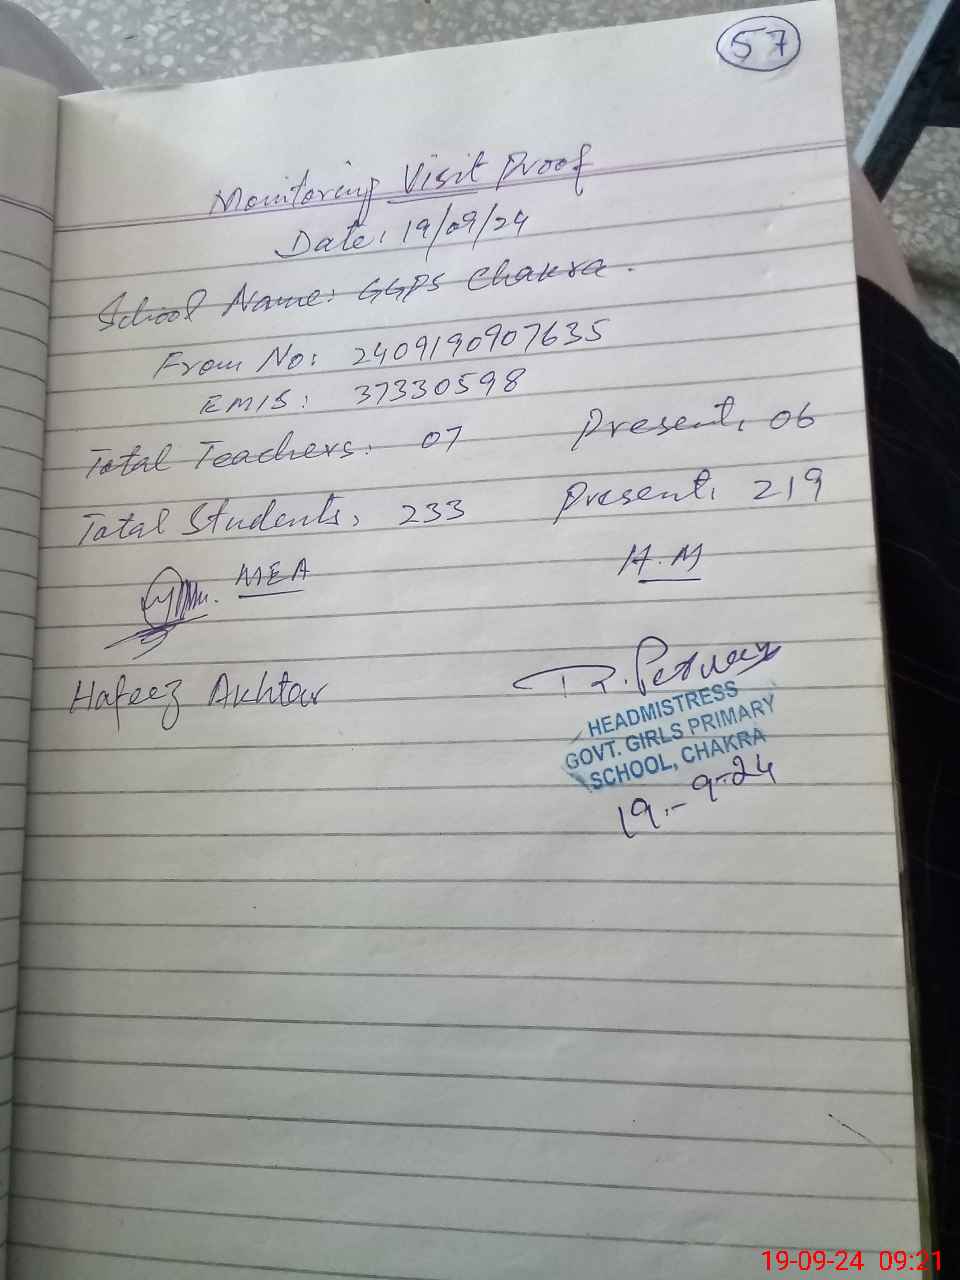 57
Monitoring Visit Proof
Date: 19/09/24
School Name: GGPS Chakra.
From No: 2409190907635
EMIS: 37330598
Total Teachers: 07 Present: 06
Total Students: 233 Present: 219
MEA H.M
Hafeez Akhtar
HEADMISTRESS
GOVT. GIRLS PRIMARY
SCHOOL, CHAKRA
19-9-24
19-09-24 09:21